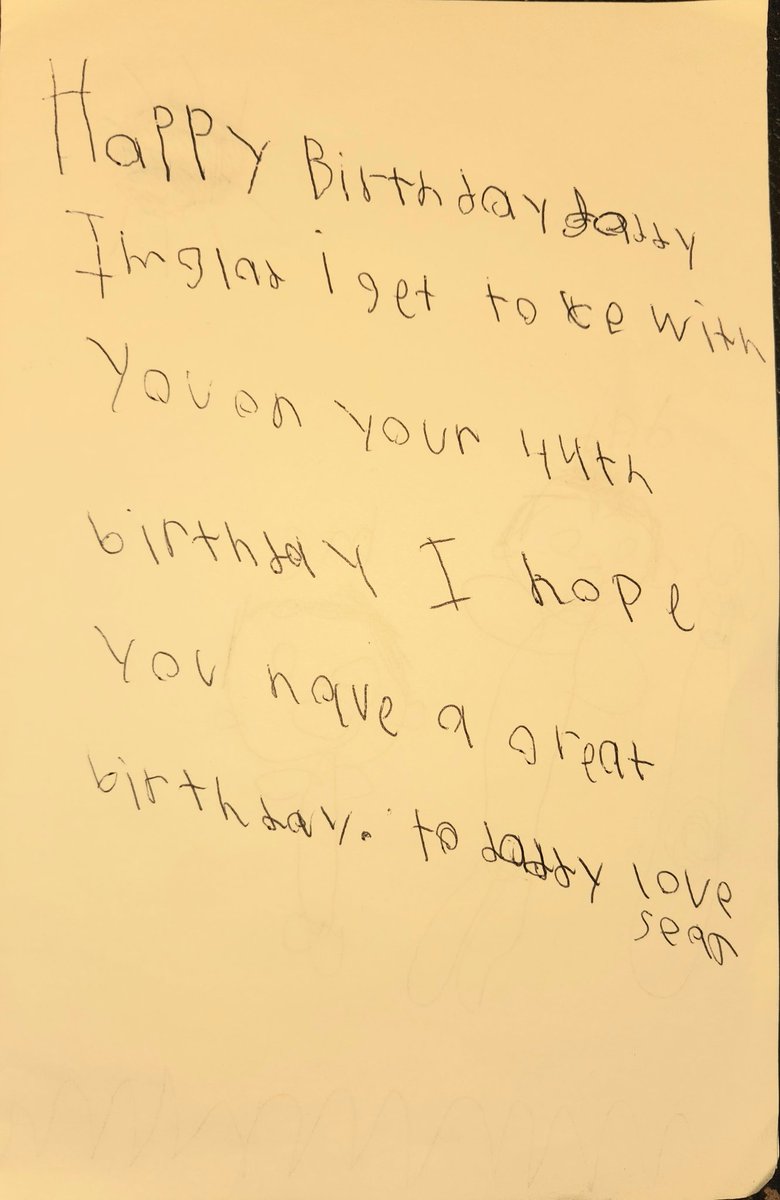 Happy Birthday daddy
Im glad i get to be with
you on your 44th
birthday I hope
you have a great
birthday. to daddy love
sean